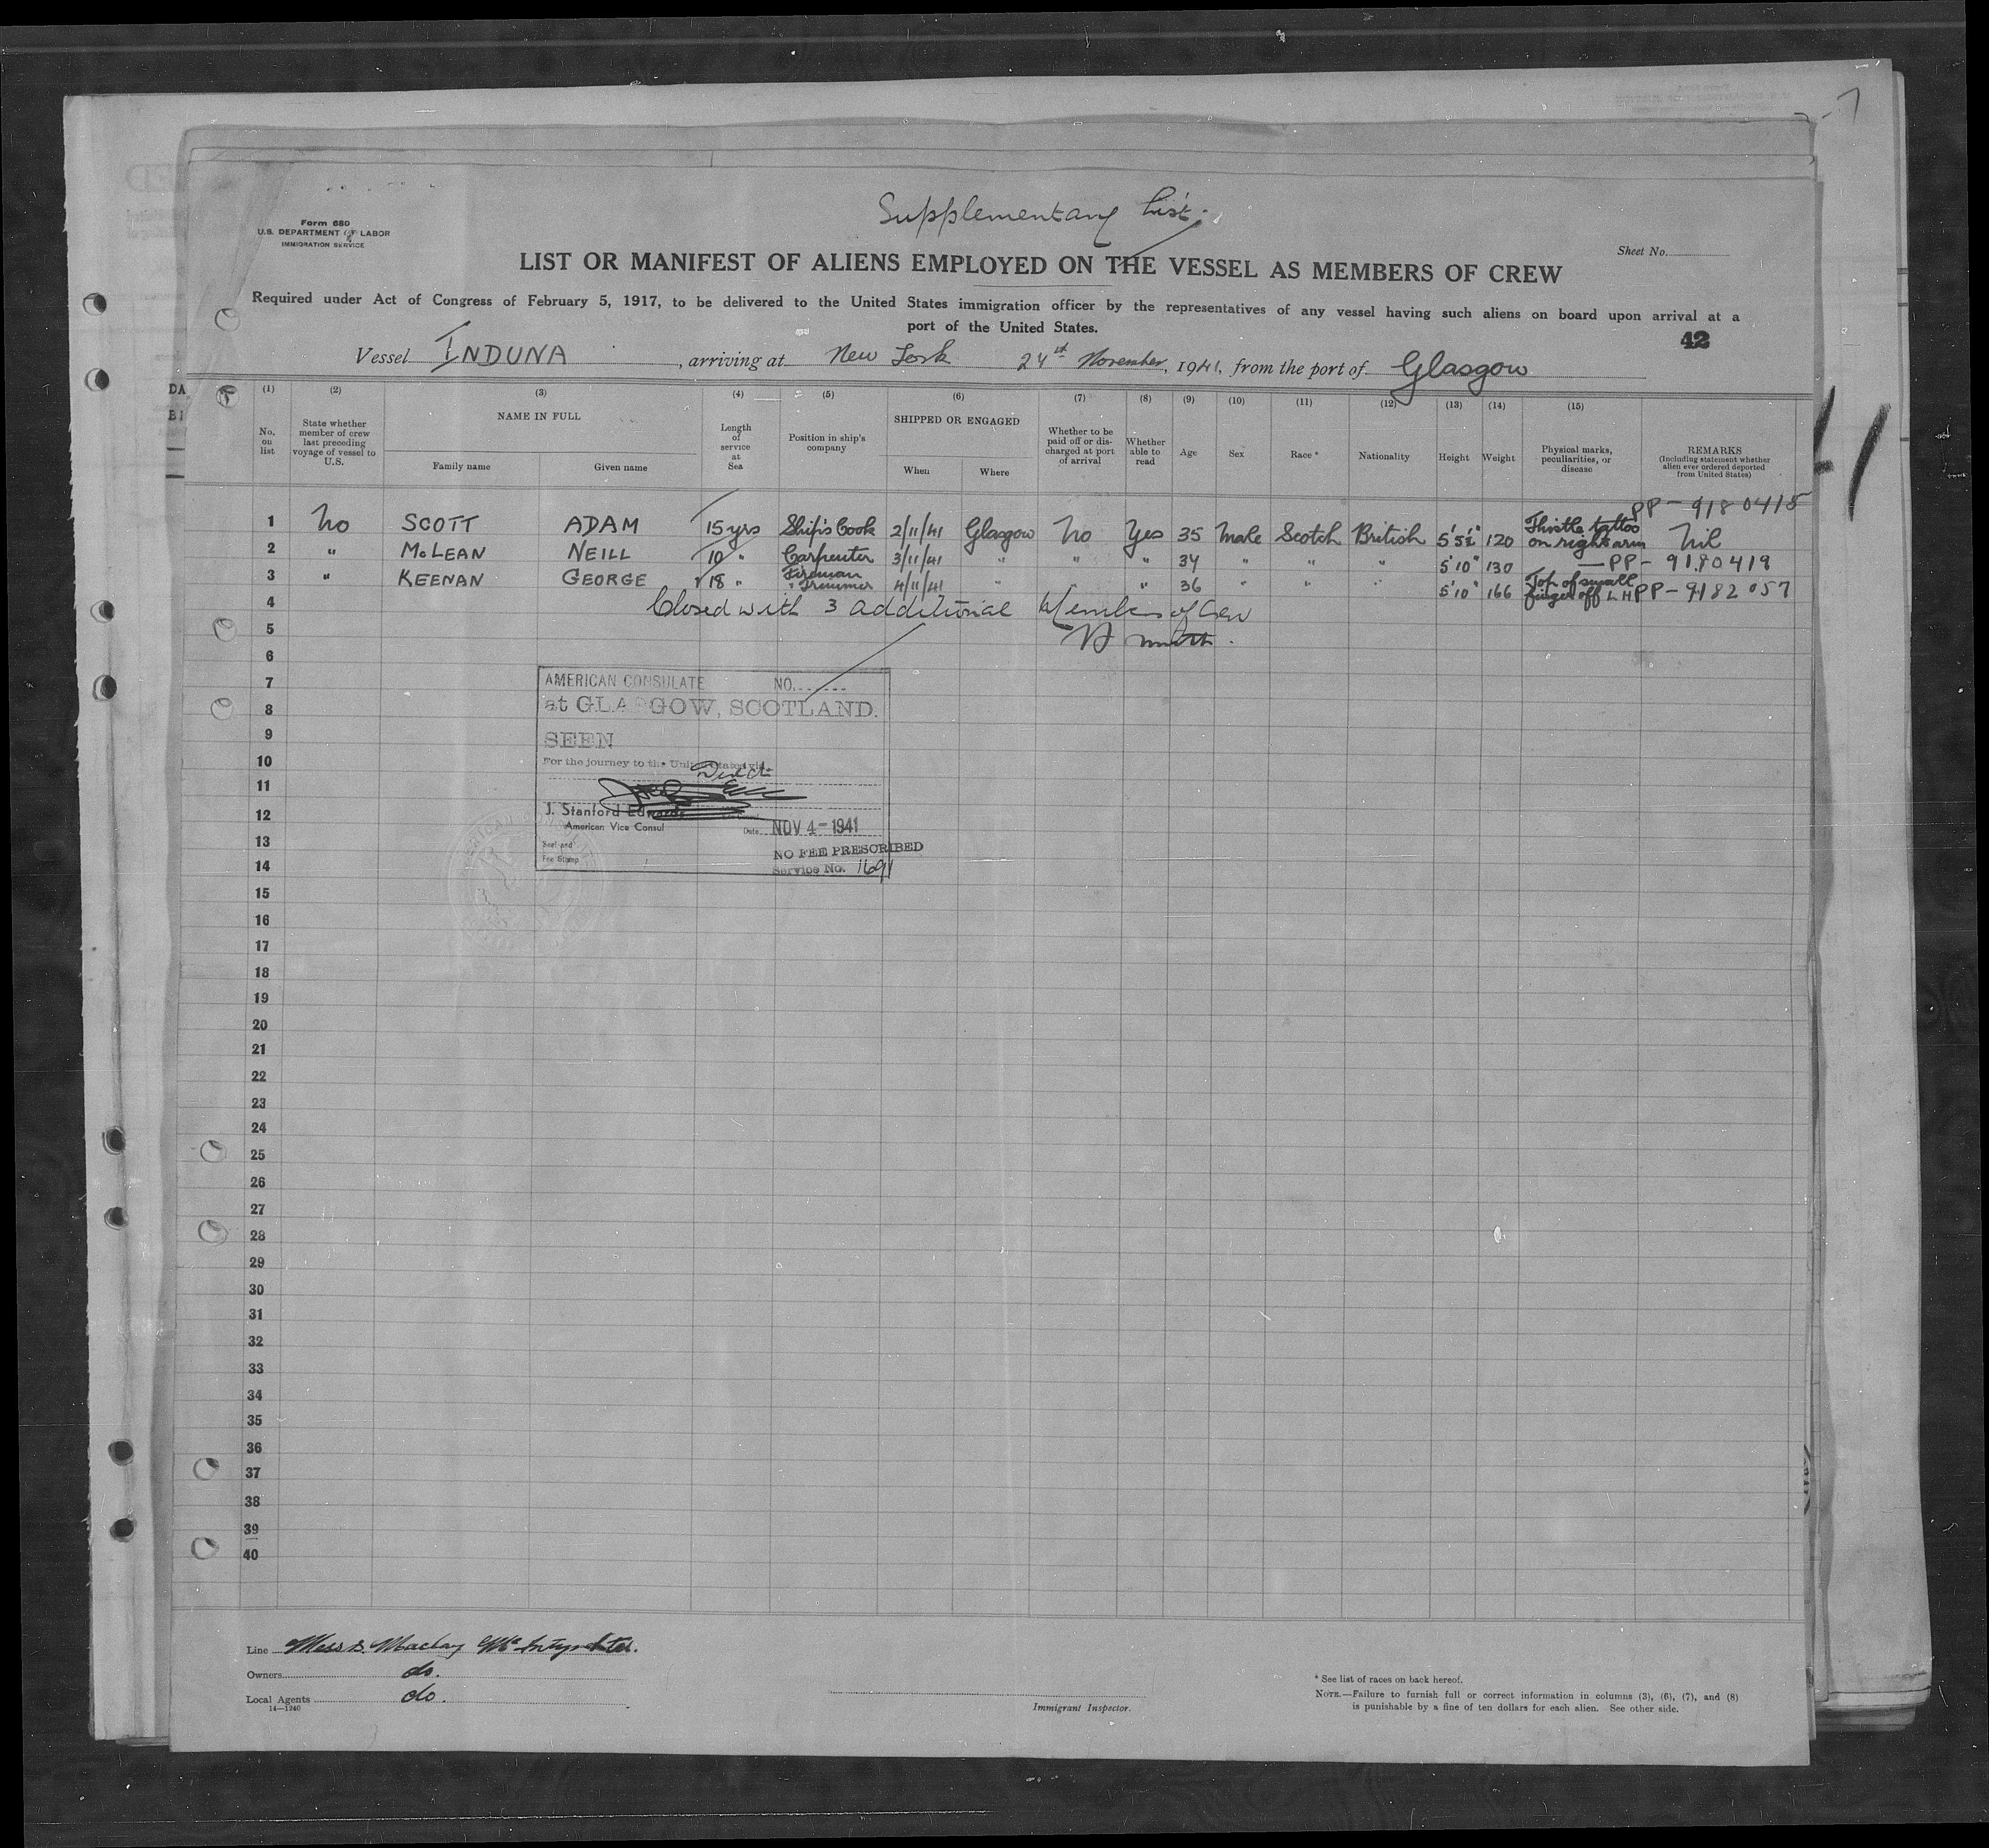 Supplementary List.
Form 680
U.S. DEPARTMENT OF LABOR
IMMIGRATION SERVICE
Sheet No.
LIST OR MANIFEST OF ALIENS EMPLOYED ON THE VESSEL AS MEMBERS OF CREW
Required under Act of Congress of February 5, 1917, to be delivered to the United States immigration officer by the representatives of any vessel having such aliens on board upon arrival at a
port of the United States.
42
Vessel INDUNA, arriving at New York 24th November, 1941, from the port of Glasgow
DA
BI
(1) (2) (3) (4) (5) (6) (7) (8) (9) (10) (11) (12) (13) (14) (15)
No. on list
State whether member of crew last preceding voyage of vessel to U.S.
NAME IN FULL
Family name Given name
Length of service at Sea
Position in ship's company
SHIPPED OR ENGAGED
When Where
Whether to be paid off or discharged at port of arrival
Whether able to read
Age
Sex
Race *
Nationality
Height
Weight
Physical marks, peculiarities, or disease
REMARKS
(Including statement whether alien ever ordered deported from United States)
PP - 9180415
1 No SCOTT ADAM 15 yrs Ship's Cook 2/11/41 Glasgow No Yes 35 Male Scotch British 5'5½" 120 Thistle tattoo on right arm Nil
2 " McLEAN NEILL 10 " Carpenter 3/11/41 " " " 34 " " " 5'10" 130 — PP - 9180419
3 " KEENAN GEORGE 18 " Fireman & Trimmer 4/11/41 " " 36 " " " 5'10" 166 Top of small finger off L H PP - 9182057
4 Closed with 3 additional Members of Crew
5
6
7
8
9
10
11
12
13
14
15
16
17
18
19
20
21
22
23
24
25
26
27
28
29
30
31
32
33
34
35
36
37
38
39
40
AMERICAN CONSULATE NO.
at GLASGOW, SCOTLAND.
SEEN
For the journey to the United States via
Direct
J. Stanford Edwards
American Vice Consul
Date NOV 4-1941
Seal and
Fee Stamp
NO FEE PRESCRIBED
Service No. 1691
Line Messrs. Maclay & McIntyre Ltd.
Owners do.
Local Agents do.
14—1240
Immigrant Inspector.
* See list of races on back hereof.
NOTE.—Failure to furnish full or correct information in columns (3), (6), (7), and (8)
is punishable by a fine of ten dollars for each alien. See other side.